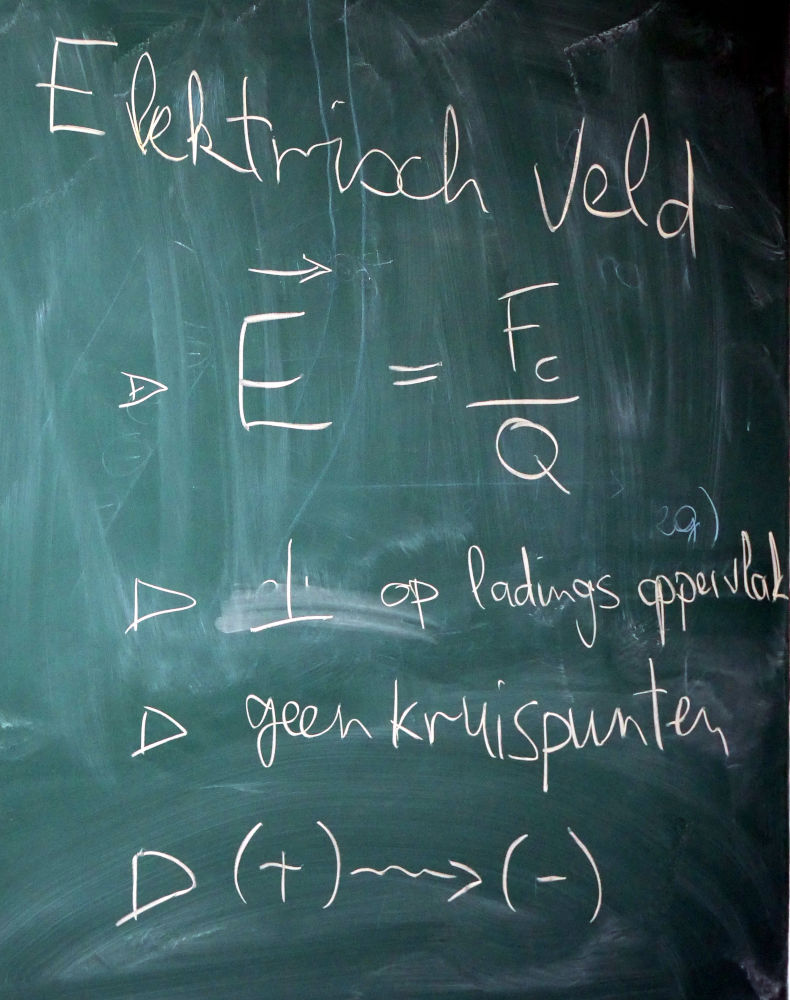 Elektrisch veld
▷ E⃗ = Fc / Q
▷ ⊥ op ladings oppervlak
▷ geen kruispunten
▷ (+) ⇝ (-)